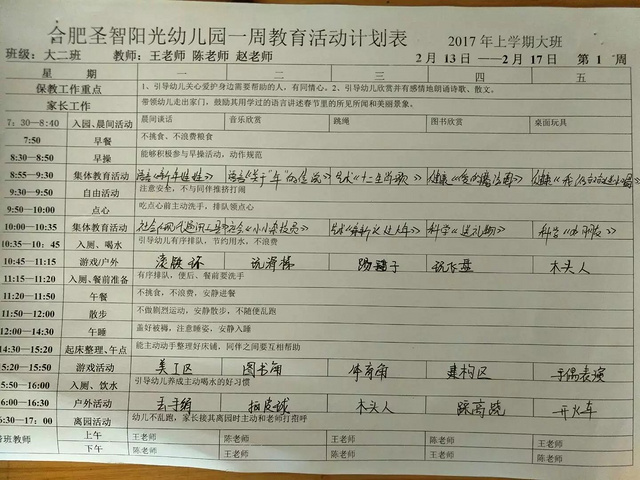 合肥圣智阳光幼儿园一周教育活动计划表 2017年上学期大班
班级：大二班 教师：王老师 陈老师 赵老师 2月13日—2月17日 第1周
星期 一 二 三 四 五
保教工作重点 1、引导幼儿关心爱护身边需要帮助的人，有同情心。2、引导幼儿欣赏并有感情地朗诵诗歌、散文。
家长工作 带领幼儿走出家门，鼓励其用学过的语言讲述春节里的所见所闻和美丽景象。
7：30—8:40 入园、晨间活动 晨间谈话 音乐欣赏 跳绳 图书欣赏 桌面玩具
7:50 早餐 不挑食、不浪费粮食
8:30—8:50 早操 能够积极参与早操活动，动作规范
8:55—9:30 集体教育活动
9:30—9:50 自由活动 注意安全，不与同伴推挤打闹
9:50 点心 吃点心前主动洗手，排队领点心
10:00—10:35 集体教育活动 科学《送礼物》
10:35—10：45 入厕、喝水 引导幼儿有序排队，节约用水，不浪费
10:45—11:15 游戏/户外 滚铁环 踢毽子 玩飞盘 木头人
11:15—11:20 入厕、餐前准备 有序排队，便后、餐前要洗手
11:20—11:50 午餐 不挑食，不浪费，安静进餐
11:50—12:00 散步 不做剧烈运动，安静散步，不随便乱跑
12:00—14:30 午睡 盖好被褥，注意睡姿，安静入睡
14:30—15:20 起床整理、午点 能主动动手整理好床铺，同伴之间要互相帮助
5:20—15:50 游戏活动 美工区 图书角 体育角 建构区 手偶表演
5:50—16:00 入厕、饮水 引导幼儿养成主动喝水的好习惯
6:00—16:30 户外活动 丢手绢 拍皮球 木头人 踩高跷 开火车
6:30—17：00 离园活动 幼儿不乱跑，家长接其离园时主动和老师打招呼
班教师 上午 王老师 陈老师 王老师 陈老师 王老师
下午 陈老师 王老师 陈老师 王老师 陈老师